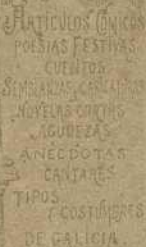 ARTICULOS COMICOS
POESIAS FESTIVAS
CUENTOS
SEMBLANZAS, CARICATURAS
NOVELAS CORTAS
AGUDEZAS
ANECDOTAS
CANTARES
TIPOS
Y COSTUMBRES
DE GALICIA.